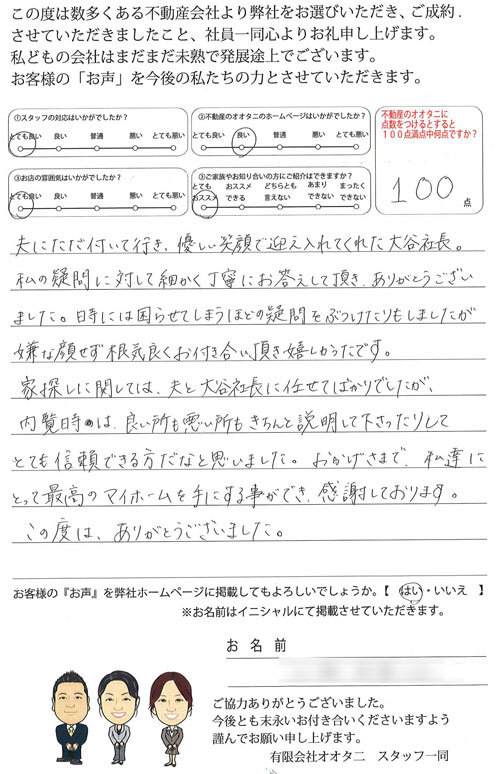 この度は数多くある不動産会社より弊社をお選びいただき、ご成約.
させていただきましたこと、社員一同心よりお礼申し上げます。
私どもの会社はまだまだ未熟で発展途上でございます。
お客様の「お声」を今後の私たちの力とさせていただきます。
①スタッフの対応はいかがでしたか？
とても良い 良い 普通 悪い とても悪い
②不動産のオオタニのホームページはいかがでしたか？
とても良い 良い 普通 悪い とても悪い
③お店の雰囲気はいかがでしたか？
とても良い 良い 普通 悪い とても悪い
③ご家族やお知り合いの方にご紹介はできますか？
とてもおススメ おススメできる どちらとも言えない あまりできない まったくできない
不動産のオオタニに
点数をつけるとすると
１００点満点中何点ですか？
100 点
夫にただ付いて行き、優しい笑顔で迎え入れてくれた大谷社長。
私の疑問に対して細かく丁寧にお答えして頂き、ありがとうござい
ました。時には困らせてしまうほどの疑問をぶつけたりもしましたが
嫌な顔せず根気良くお付き合い頂き嬉しかったです。
家探しに関しては、夫と大谷社長に任せてばかりでしたが、
内覧時は、良い所も悪い所もきちんと説明して下さったりして
とても信頼できる方だなと思いました。おかげさまで、私達に
とって最高のマイホームを手にする事ができ、感謝しております。
この度は、ありがとうございました。
お客様の『お声』を弊社ホームページに掲載してもよろしいでしょうか。【 はい・いいえ 】
※お名前はイニシャルにて掲載させていただきます。
お 名 前
ご協力ありがとうございました。
今後とも末永いお付き合いくださいますよう
謹んでお願い申し上げます。
有限会社オオタニ スタッフ一同